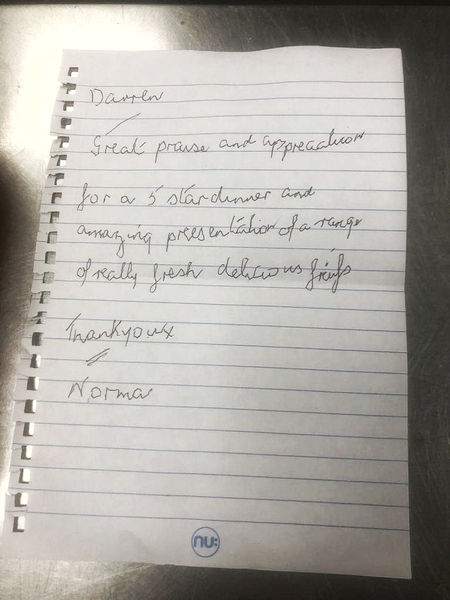 Darren
Great praise and appreciation
for a 5 star dinner and
amazing presentation of a range
of really fresh delicious
Thankyou x
Norma
nu: